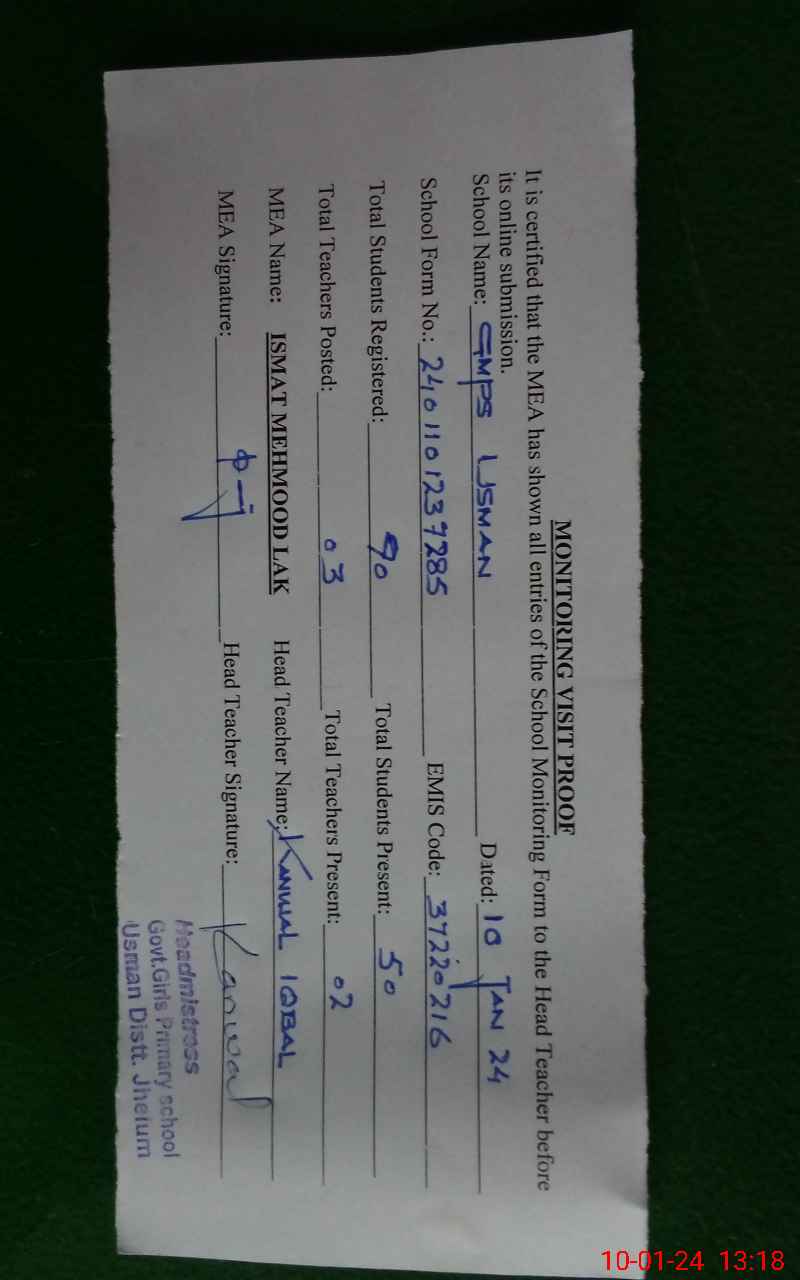 MONITORING VISIT PROOF
It is certified that the MEA has shown all entries of the School Monitoring Form to the Head Teacher before
its online submission.
School Name: GMPS USMAN Dated: 10 JAN 24
School Form No.: 2401101237285 EMIS Code: 37220216
Total Students Registered: 90 Total Students Present: 50
Total Teachers Posted: 03 Total Teachers Present: 02
MEA Name: ISMAT MEHMOOD LAK Head Teacher Name: KANWAL IQBAL
MEA Signature: Head Teacher Signature: Kanwal
Headmistress
Govt.Girls Primary school
Usman Distt. Jhelum
10-01-24 13:18